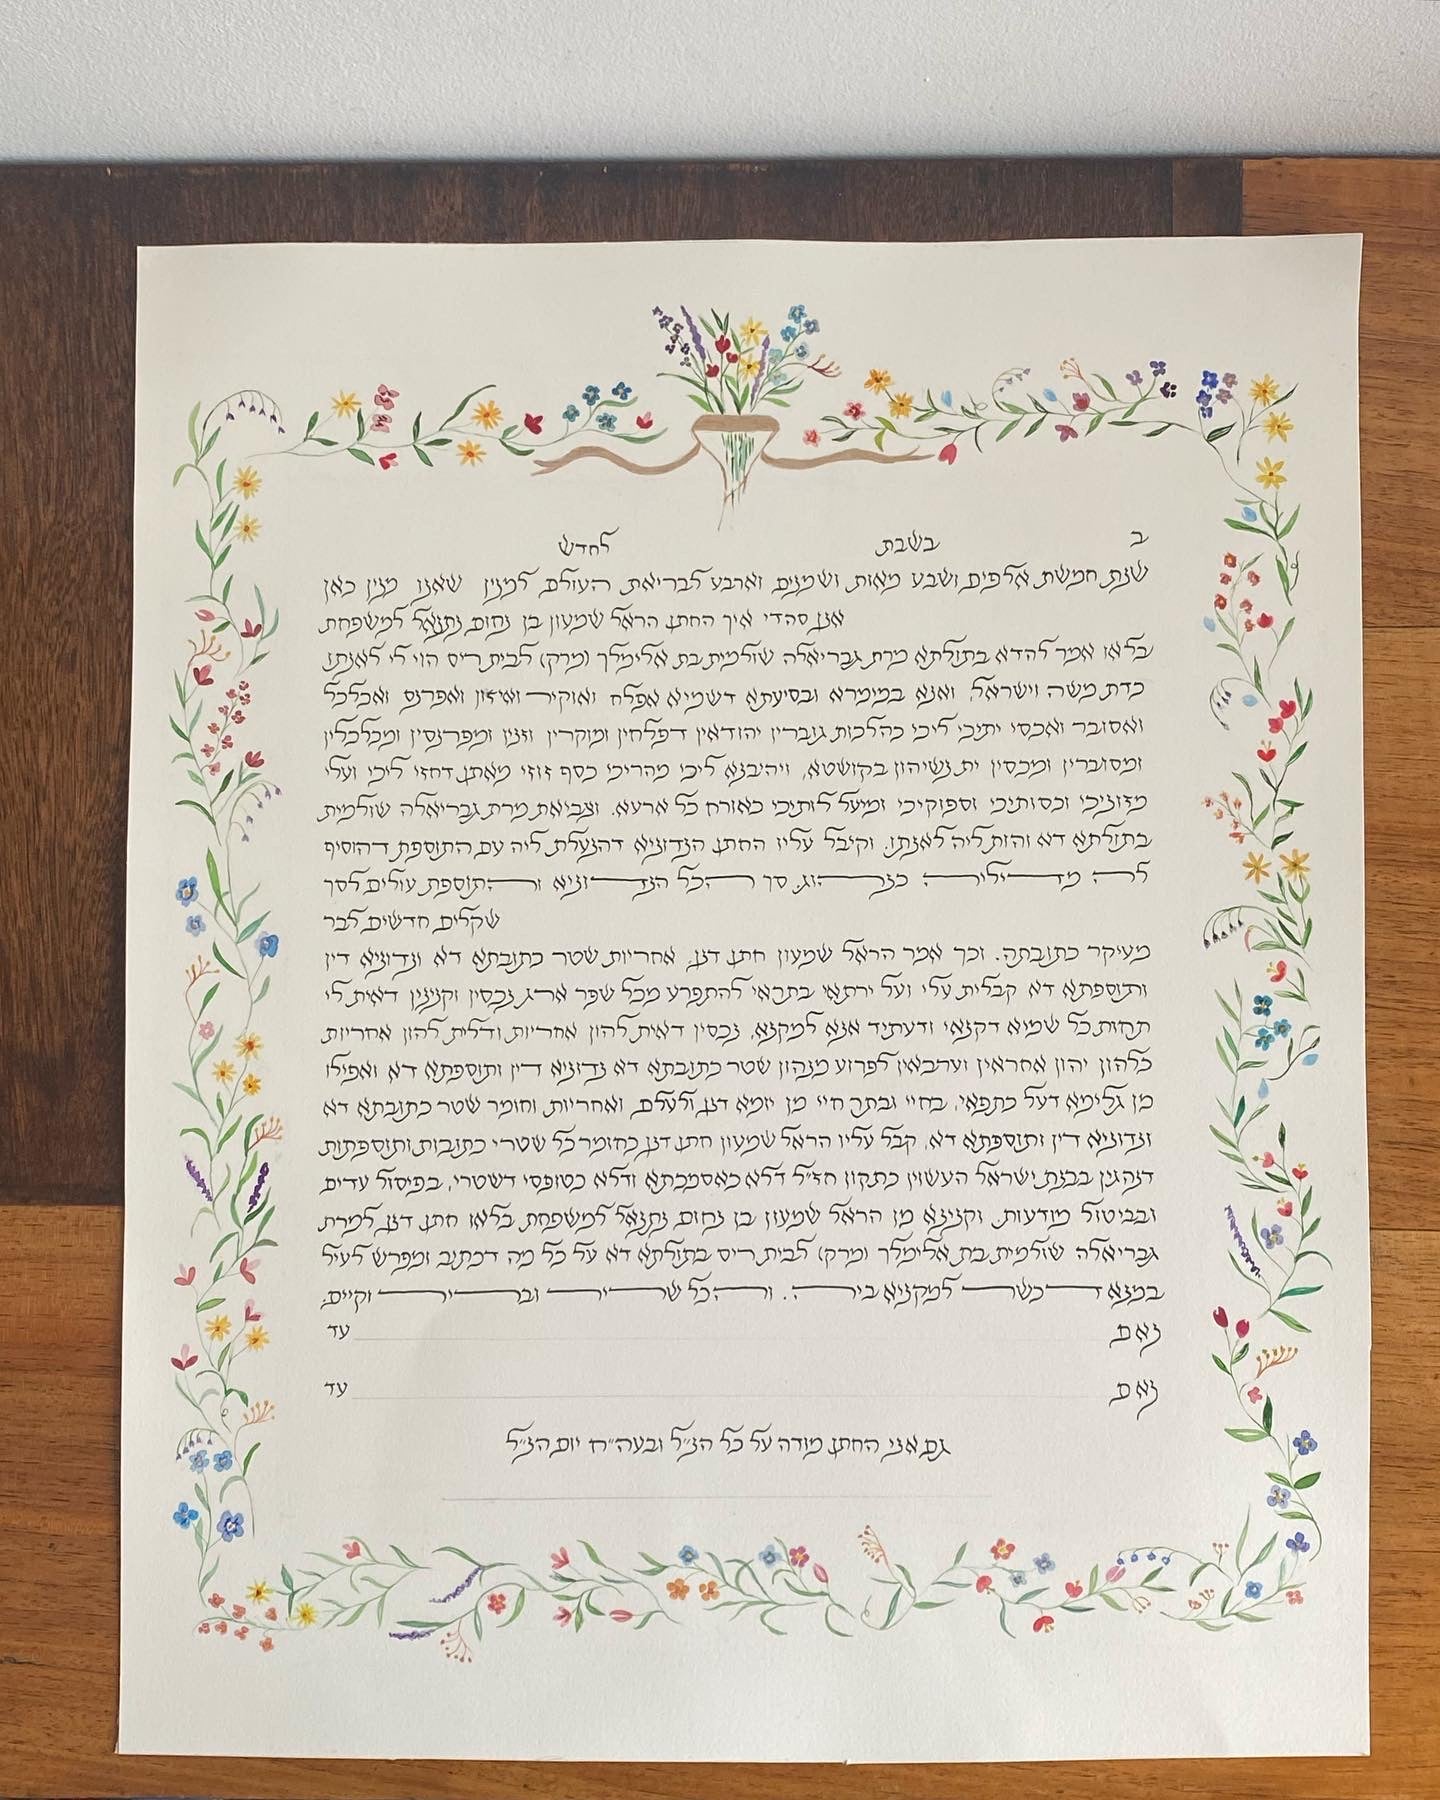 ב בשבת לחדש
שנת חמשת אלפים ושבע מאות ושמנים וארבע לבריאת העולם למנין שאנו מנין כאן
אנן סהדי איך החתן הראל שמעון בן נחום נתנאל למשפחת
בלאו אמר להדא בתולתא מרת גבריאלה שולמית בת אלימלך (מרק) לבית ריס הוי לי לאנתו
כדת משה וישראל, ואנא במימרא ובסיעתא דשמיא אפלח ואוקיר ואיזון ואפרנס ואכלכל
ואסובר ואכסי יתיכי ליכי כהלכות גוברין יהודאין דפלחין ומוקרין וזנין ומפרנסין ומכלכלין
ומסוברין ומכסין ית נשיהון בקושטא, ויהיבנא ליכי מהריכי כסף זוזי מאתן דחזי ליכי ועלי
מזוניכי וכסותיכי וספוקיכי ומיעל לותיכי כאורח כל ארעא. וצביאת מרת גבריאלה שולמית
בתולתא דא והות ליה לאנתו. וקיבל עליו החתן הנדוניא דהנעלת ליה עם התוספת דהוסיף
לה מדיליה כנהוג, סך הכל הנדוניא והתוספת עולים לסך
שקלים חדשים לבר
מעיקר כתובתה. וכך אמר הראל שמעון חתן דנן, אחריות שטר כתובתא דא ונדוניא דין
ותוספתא דא קבלית עלי ועל ירתאי בתראי להתפרע מכל שפר ארג נכסין וקנינין דאית לי
תחות כל שמיא דקנאי ודעתיד אנא למקנא, נכסין דאית להון אחריות ודלית להון אחריות
כלהון יהון אחראין וערבאין לפרוע מנהון שטר כתובתא דא נדוניא דין ותוספתא דא ואפילו
מן גלימא דעל כתפאי, בחיי ובתר חיי מן יומא דנן ולעלם, ואחריות וחומר שטר כתובתא דא
ונדוניא דין ותוספתא דא, קבל עליו הראל שמעון חתן דנן כחומר כל שטרי כתובות ותוספתות
דנהגין בבנת ישראל העשוין כתקון חז״ל דלא כאסמכתא ודלא כטופסי דשטרי, בפיסול עדים
ובביטול מודעות, וקנינא מן הראל שמעון בן נחום נתנאל למשפחת בלאו חתן דנן למרת
גבריאלה שולמית בת אלימלך (מרק) לבית ריס בתולתא דא על כל מה דכתיב ומפרש לעיל
במנא דכשר למקניא ביה. והכל שריר ובריר וקיים.
נאם עד
נאם עד
גם אני החתן מודה על כל הנ״ל ובעה״ח יום הנ״ל